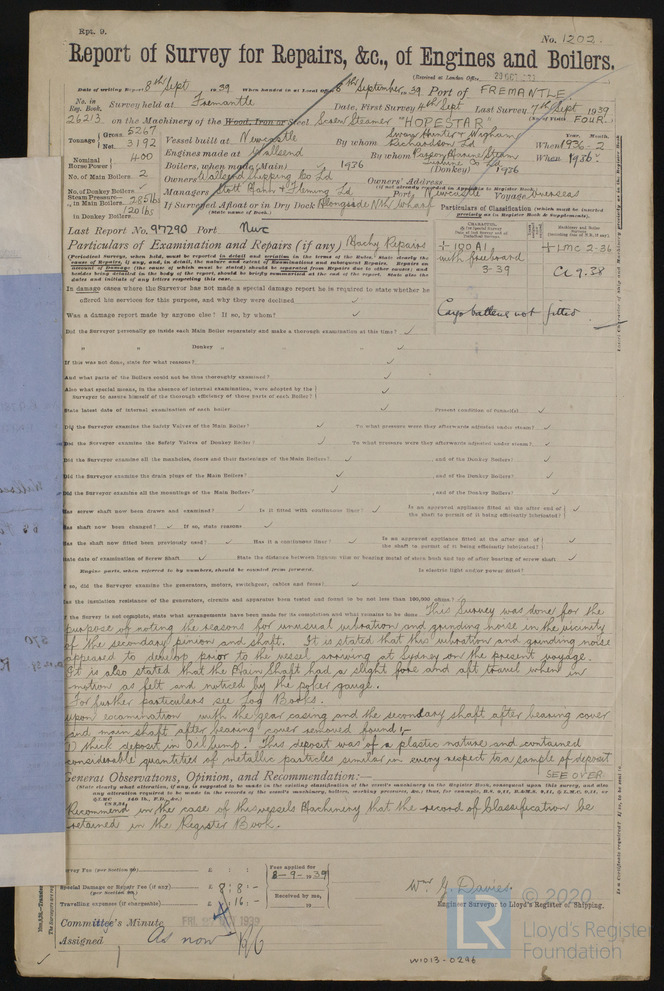 Rpt. 9.
No. 1202.
Report of Survey for Repairs, &c., of Engines and Boilers.
(Received at London Office 20 OCT 1939
Date of writing Report 8th Sept 1939 When handed in at Local Office 8th September 1939 Port of FREMANTLE
No. in Reg. Book. Survey held at Fremantle Date, First Survey 4th Sept Last Survey 7th Sept 1939
26213 on the Machinery of the Wood, Iron or Steel Screw Steamer "HOPESTAR" (No. of Visits FOUR.)
Tonnage Gross 5267 Net 3192
Vessel built at Newcastle By whom Swan Hunter & Wigham Richardson Ld When 1936-2
Nominal Horse Power 400
Engines made at Wallsend By whom Parsons Marine Steam Turbine Co When 1936
No. of Main Boilers 2 Boilers, when made (Main) 1936 (Donkey) 1936
No. of Donkey Boilers
Owners Wallsend Shipping Co Ld Owners' Address
Steam Pressure in Main Boilers
in Donkey Boilers 120 lbs
Managers Stott Mann & Fleming Ld Port Newcastle Voyage Overseas
If Surveyed Afloat or in Dry Dock Alongside Nth Wharf
(State name of Dock.)
Particulars of Classification (which must be inserted precisely as in Register Book & Supplements).
Last Report No. 97290 Port Nwc
Particulars of Examination and Repairs (if any) Machy Repairs
+ 100A1 with freeboard 3-39
+ LMC 2-36
CL 9.38
Cargo battens not fitted
In damage cases where the Surveyor has not made a special damage report he is required to state whether he
offered his services for this purpose, and why they were declined
Was a damage report made by anyone else? If so, by whom?
Did the Surveyor personally go inside each Main Boiler separately and make a thorough examination at this time?
" " Donkey "
If this was not done, state for what reasons?
And what parts of the Boilers could not be thus thoroughly examined?
Also what special means, in the absence of internal examination, were adopted by the
Surveyor to assure himself of the thorough efficiency of those parts of each Boiler?
State latest date of internal examination of each boiler Present condition of funnel(s)
Did the Surveyor examine the Safety Valves of the Main Boiler? To what pressure were they afterwards adjusted under steam?
Did the Surveyor examine the Safety Valves of Donkey Boiler? To what pressure were they afterwards adjusted under steam?
Did the Surveyor examine all the manholes, doors and their fastenings of the Main Boilers? , and of the Donkey Boilers?
Did the Surveyor examine the drain plugs of the Main Boilers? , and of the Donkey Boilers?
Did the Surveyor examine all the mountings of the Main Boilers? , and of the Donkey Boilers?
Has screw shaft now been drawn and examined? Is it fitted with continuous liner? Is an approved appliance fitted at the after end of
the shaft to permit of it being efficiently lubricated?
Has shaft now been changed? If so, state reasons
Has the shaft now fitted been previously used? Has it a continuous liner? Is an approved appliance fitted at the after end of
the shaft to permit of it being efficiently lubricated?
State date of examination of Screw Shaft State the distance between lignum vitæ or bearing metal of stern bush and top of after bearing of screw shaft
Engine parts, when referred to by numbers, should be counted from forward. Is electric light and/or power fitted?
If so, did the Surveyor examine the generators, motors, switchgear, cables and fuses?
Has the insulation resistance of the generators, circuits and apparatus been tested and found to be not less than 100,000 ohms?
If the survey is not complete, state what arrangements have been made for its completion and what remains to be done This Survey was done for the
purpose of noting the reasons for unusual vibration and grinding noise in the vicinity
of the secondary pinion and shaft. It is stated that this vibration and grinding noise
appeared to develop prior to the vessel arriving at Sydney on the present voyage.
It is also stated that the Main Shaft had a slight fore and aft travel when in
motion as felt and noticed by the poker gauge.
For further particulars see Log Books.
Upon examination with the gear casing and the secondary shaft after bearing cover
and main shaft after bearing cover removed found:-
1) Thick deposit in Oil Sump. This deposit was of a plastic nature and contained
considerable quantities of metallic particles similar in every respect to a sample of deposit
SEE OVER.
General Observations, Opinion, and Recommendation:—
Recommend in the case of this vessels Machinery that the record of Classification be
retained in the Register Book.
Survey Fee (per Section 29) £ : :
Fee applied for 8-9-1939
Special Damage or Repair Fee (if any) £ 8 : 8 : -
(per Section 29.)
Travelling expenses (if chargeable) £ : 16 : -
Received by me, 19
Wm. G. Davies
Engineer Surveyor to Lloyd's Register of Shipping.
Committee's Minute FRI. OCT 1939
Assigned As now
© 2020
LR
Lloyd's Register
Foundation
W1013-0296